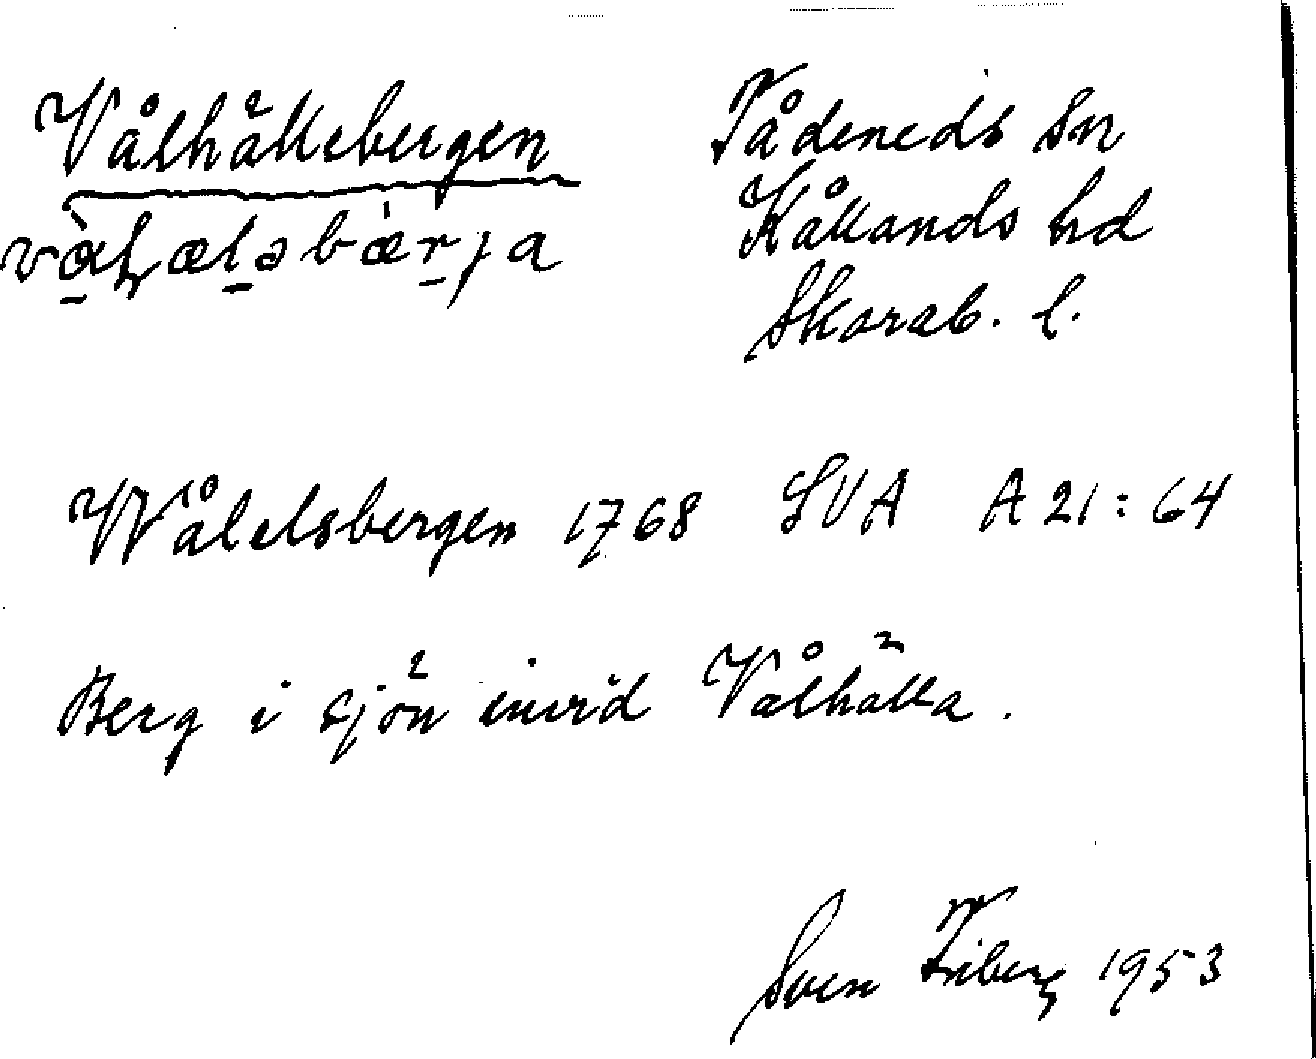 Vålhällebergen
Tådeneds sn
Kållands hd
Skarab. l.
Wålelsbergen 1768 LVA A 21:64
Berg i sjön invid Vålhälla.
Sven Friberg 1953